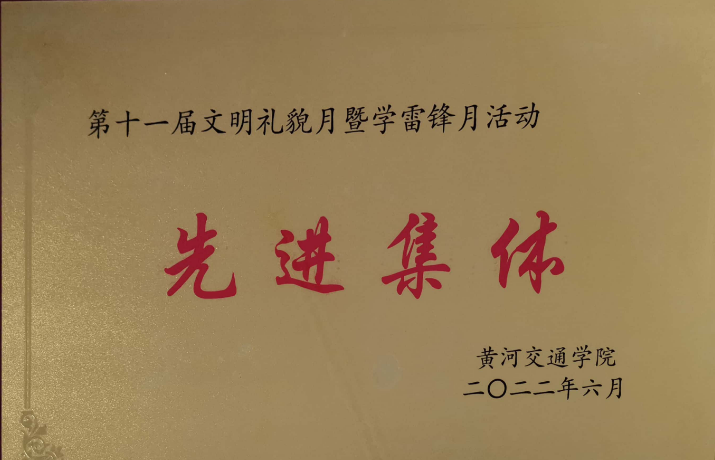 第十一届文明礼貌月暨学雷锋月活动
先进集体
黄河交通学院
二〇二二年六月